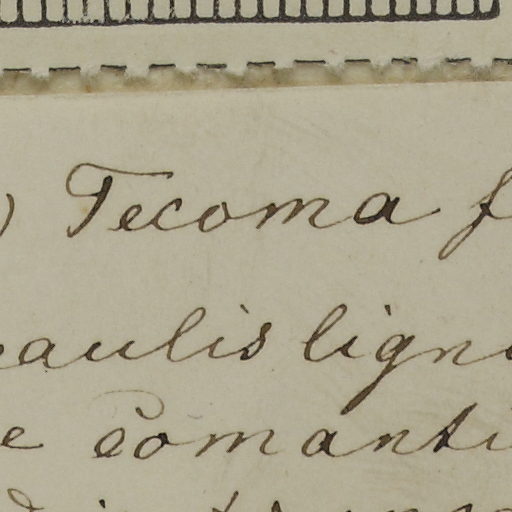 ) Tecoma f
caulis ligno
e comanti